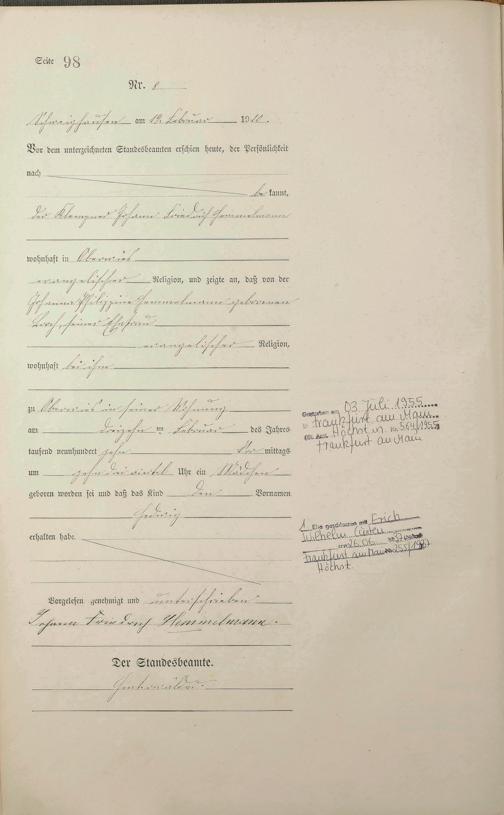 Seite 98
Nr. 8
Schweighausen am 19. Februar 1910.
Vor dem unterzeichneten Standesbeamten erschien heute, der Persönlichkeit
nach
be kannt,
der Klempner Johann Friedrich Hemmelmann
wohnhaft in Oberwies
evangelischer Religion, und zeigte an, daß von der
Johanna Philippine Hemmelmann geborenen
seiner Ehefrau
evangelischer Religion,
wohnhaft bei ihm
zu Oberwies in seiner Wohnung
am dreizehn ten Februar des Jahres
tausend neunhundert zehn Vor mittags
um zehn dreiviertel Uhr ein Mädchen
geboren worden sei und daß das Kind den Vornamen
Hedwig
erhalten habe.
Vorgelesen genehmigt und unterschrieben
Johann Friedrich Hemmelmann.
Der Standesbeamte.
Gestorben am 03. Juli 1955
in Frankfurt am Main
Sta. Amt Höchst Nr. 564/1955
Frankfurt am Main
1. Ehe geschlossen mit Erich
Wilhelm
am 26.06.
Frankfurt am Main
Höchst.